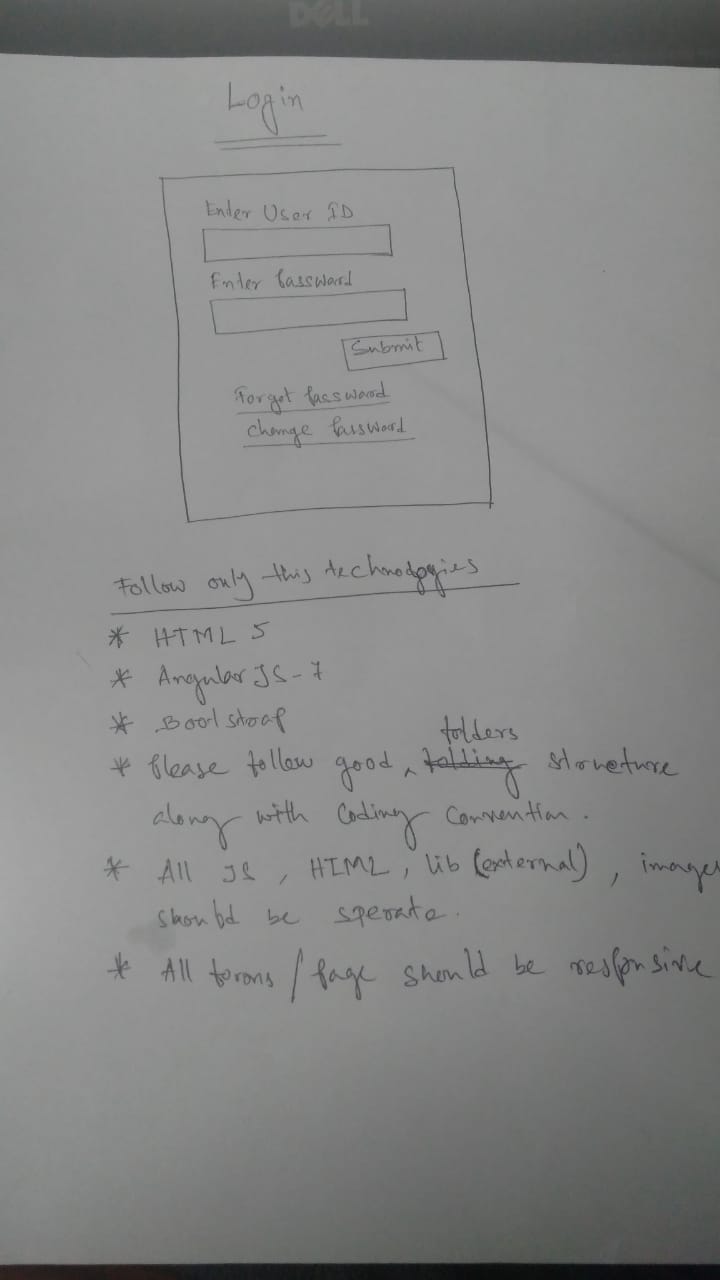 DELL
Login
Enter User ID
Enter Password
Submit
Forgot Password
Change Password
Follow only this technologies
* HTML 5
* Angular JS-7
* Bootstrap
folders
* Please follow good ^ folding structure
along with Coding Convention.
* All JS, HTML, lib (external), images
should be sperate.
* All forms / Page should be responsive